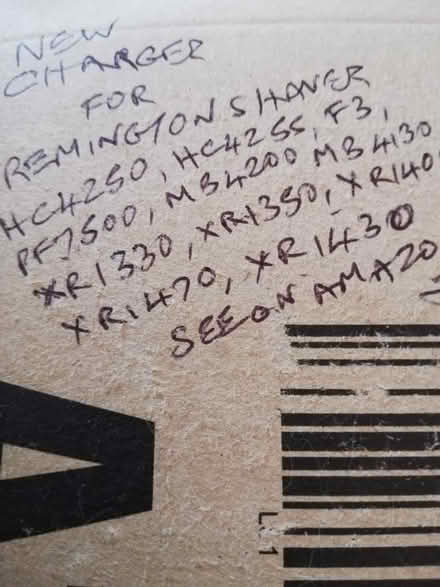 NEW
CHARGER
FOR
REMINGTON SHAVER
HC4250, HC4255, F3,
PF7500, MB4200 MB4130
XR1330, XR1350, XR140
XR1470, XR1430
SEE ON AMAZO
A